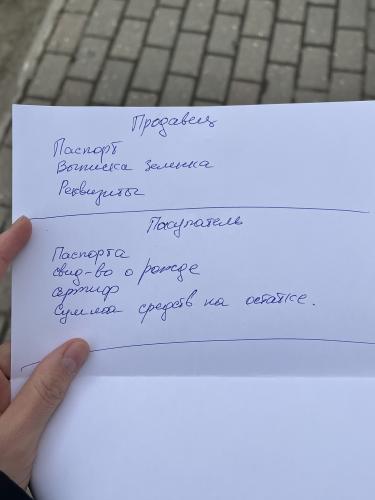 Продавец
Паспорт
Выписка Зеленка
Реквизиты
Покупатель
Паспорта
свид-во о рожде
сертиф
Сумма средств на остатке.